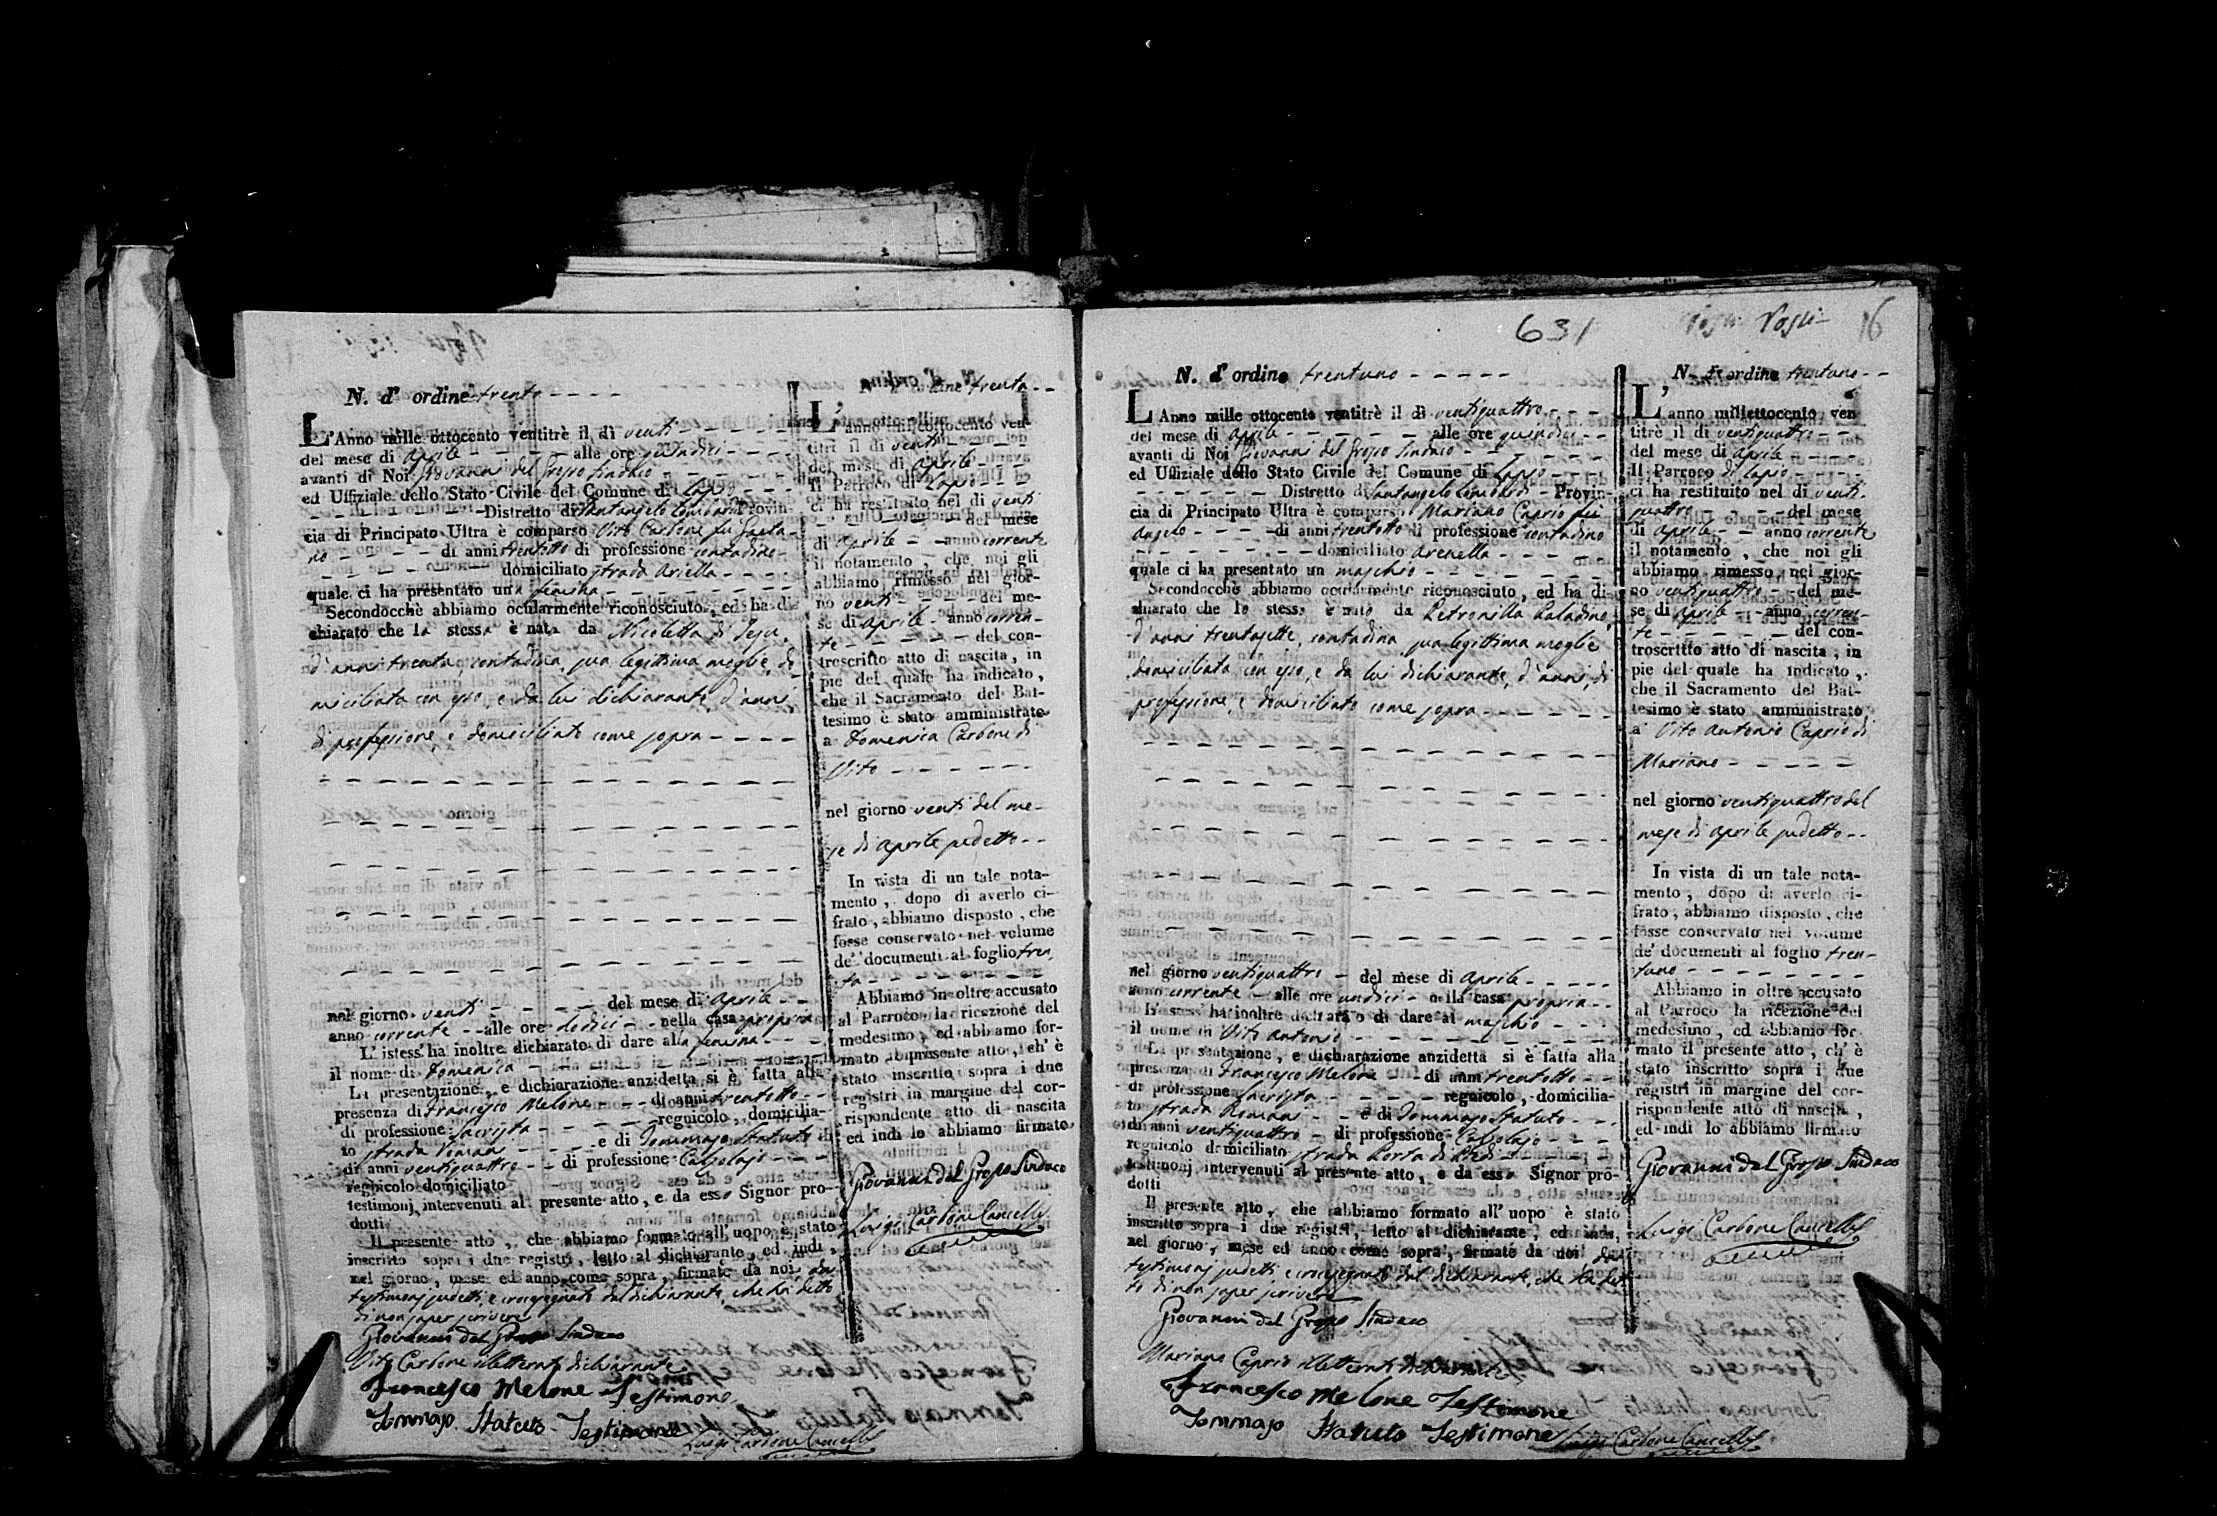 N. d' ordine trenta
L'Anno mille ottocento ventitrè il dì venti
del mese di Aprile alle ore quindici
avanti di Noi Giovanni del Grosso Sindaco
ed Uffiziale dello Stato Civile del Comune di Lapio
Distretto di Santangelo Lombardi Provin-
cia di Principato Ultra è comparso Vito Carbone fu Gaeta-
no di anni trentotto di professione contadino
domiciliato strada Ariella
quale ci ha presentato una femina
Secondocchè abbiamo ocularmente riconosciuto, ed ha di-
chiarato che la stessa è nata da Nicoletta di Jesu
d'anni trenta contadina, sua legittima moglie, do
miciliata con esso, e da lui dichiarante, d'anni,
di professione, e domiciliato come sopra
nel giorno venti del mese di Aprile
anno corrente alle ore dodici nella casa propria
L'istess' ha inoltre dichiarato di dare alla femina
il nome di Domenica
La presentazione, e dichiarazione anzidetta si è fatta alla
presenza di Francesco Melone di anni trentotto
di professione Sacrista regnicolo, domicilia-
to strada Romani e di Tommaso Statuto
di anni ventiquattro di professione Calzolajo
regnicolo domiciliato
testimonj intervenuti al presente atto, e da esso Signor pro-
dotti
Il presente atto, che abbiamo formato all' uopo è stato
inscritto sopra i due registri, letto al dichiarante, ed indi,
nel giorno, mese ed anno come sopra, firmato da noi, da'
testimonj sudetti, e crocesegnato dal dichiarante, che ha detto
di non saper scrivere
Giovanni del Grosso Sindaco
Vito Carbone illetterato dichiarante
Francesco Melone Testimone
Tommaso Statuto Testimone
Luigi Carbone Cancell.
N. d' ordine trenta
L' anno millettocento ven-
titrè il dì venti
del mese di Aprile
Il Parroco di Lapio
ci ha restituito nel dì venti
del mese
di Aprile anno corrente
il notamento, che noi gli
abbiamo rimesso nel gior-
no venti del me-
se di Aprile anno corren-
te del con-
troscritto atto di nascita, in
pie del quale ha indicato,
che il Sacramento del Bat-
tesimo è stato amministrato
a Domenica Carbone di
Vito
nel giorno venti del me-
se di Aprile sudetto
In vista di un tale nota-
mento, dopo di averlo ci-
frato, abbiamo disposto, che
fosse conservato nel volume
de' documenti al foglio tren
ta
Abbiamo in oltre accusato
al Parroco la ricezione del
medesimo, ed abbiamo for-
mato il presente atto, ch' è
stato inscritto sopra i due
registri in margine del cor-
rispondente atto di nascita
ed indi lo abbiamo firmato
Giovanni del Grosso Sindaco
Luigi Carbone Cancell.
631
16
N. d' ordine trentuno
L'Anno mille ottocento ventitrè il dì ventiquattro
del mese di Aprile alle ore quindici
avanti di Noi Giovanni del Grosso Sindaco
ed Uffiziale dello Stato Civile del Comune di Lapio
Distretto di Santangelo Lombardi Provin-
cia di Principato Ultra è comparso Mariano Caprio fu
Angelo di anni trentotto di professione contadino
domiciliato Arenella
quale ci ha presentato un maschio
Secondocchè abbiamo ocularmente riconosciuto, ed ha di-
chiarato che lo stesso è nato da Petronilla Paladino,
d'anni trentasette, contadina sua legittima moglie
domiciliata con esso, e da lui dichiarante, d'anni, di
professione, e domiciliato come sopra
nel giorno ventiquattro del mese di Aprile
anno corrente alle ore undici nella casa propria
L'istess' ha inoltre dichiarato di dare al maschio
il nome di Vito Antonio
La presentazione, e dichiarazione anzidetta si è fatta alla
presenza di Francesco Melone di anni trentotto
di professione Sacrista regnicolo, domicilia-
to strada Romani e di Tommaso Statuto
di anni ventiquattro di professione Calzolajo
regnicolo domiciliato strada Porta di Piedi
testimonj intervenuti al presente atto, e da esso Signor pro-
dotti
Il presente atto, che abbiamo formato all' uopo è stato
inscritto sopra i due registri, letto al dichiarante, ed indi,
nel giorno, mese ed anno come sopra, firmato da noi, da'
testimonj sudetti, e crocesegnato dal dichiarante, che ha det-
to di non saper scrivere
Giovanni del Grosso Sindaco
Mariano Caprio illetterato dichiarante
Francesco Melone Testimone
Tommaso Statuto Testimone
Luigi Carbone Cancell.
N. d' ordine trentuno
L' anno millettocento ven
titrè il dì ventiquattro
del mese di Aprile
Il Parroco di Lapio
ci ha restituito nel dì venti-
quattro del mese
di Aprile anno corrente
il notamento, che noi gli
abbiamo rimesso nel gior-
no ventiquattro del me-
se di Aprile anno corren-
te del con-
troscritto atto di nascita, in
pie del quale ha indicato,
che il Sacramento del Bat-
tesimo è stato amministrato
a Vito Antonio Caprio di
Mariano
nel giorno ventiquattro del
mese di Aprile sudetto
In vista di un tale nota-
mento, dopo di averlo ci-
frato, abbiamo disposto, che
fosse conservato nel volume
de' documenti al foglio tren-
tuno
Abbiamo in oltre accusato
al Parroco la ricezione del
medesimo, ed abbiamo for
mato il presente atto, ch' è
stato inscritto sopra i due
registri in margine del cor-
rispondente atto di nascita,
ed indi lo abbiamo firmato
Giovanni del Grosso Sindaco
Luigi Carbone Cancell.